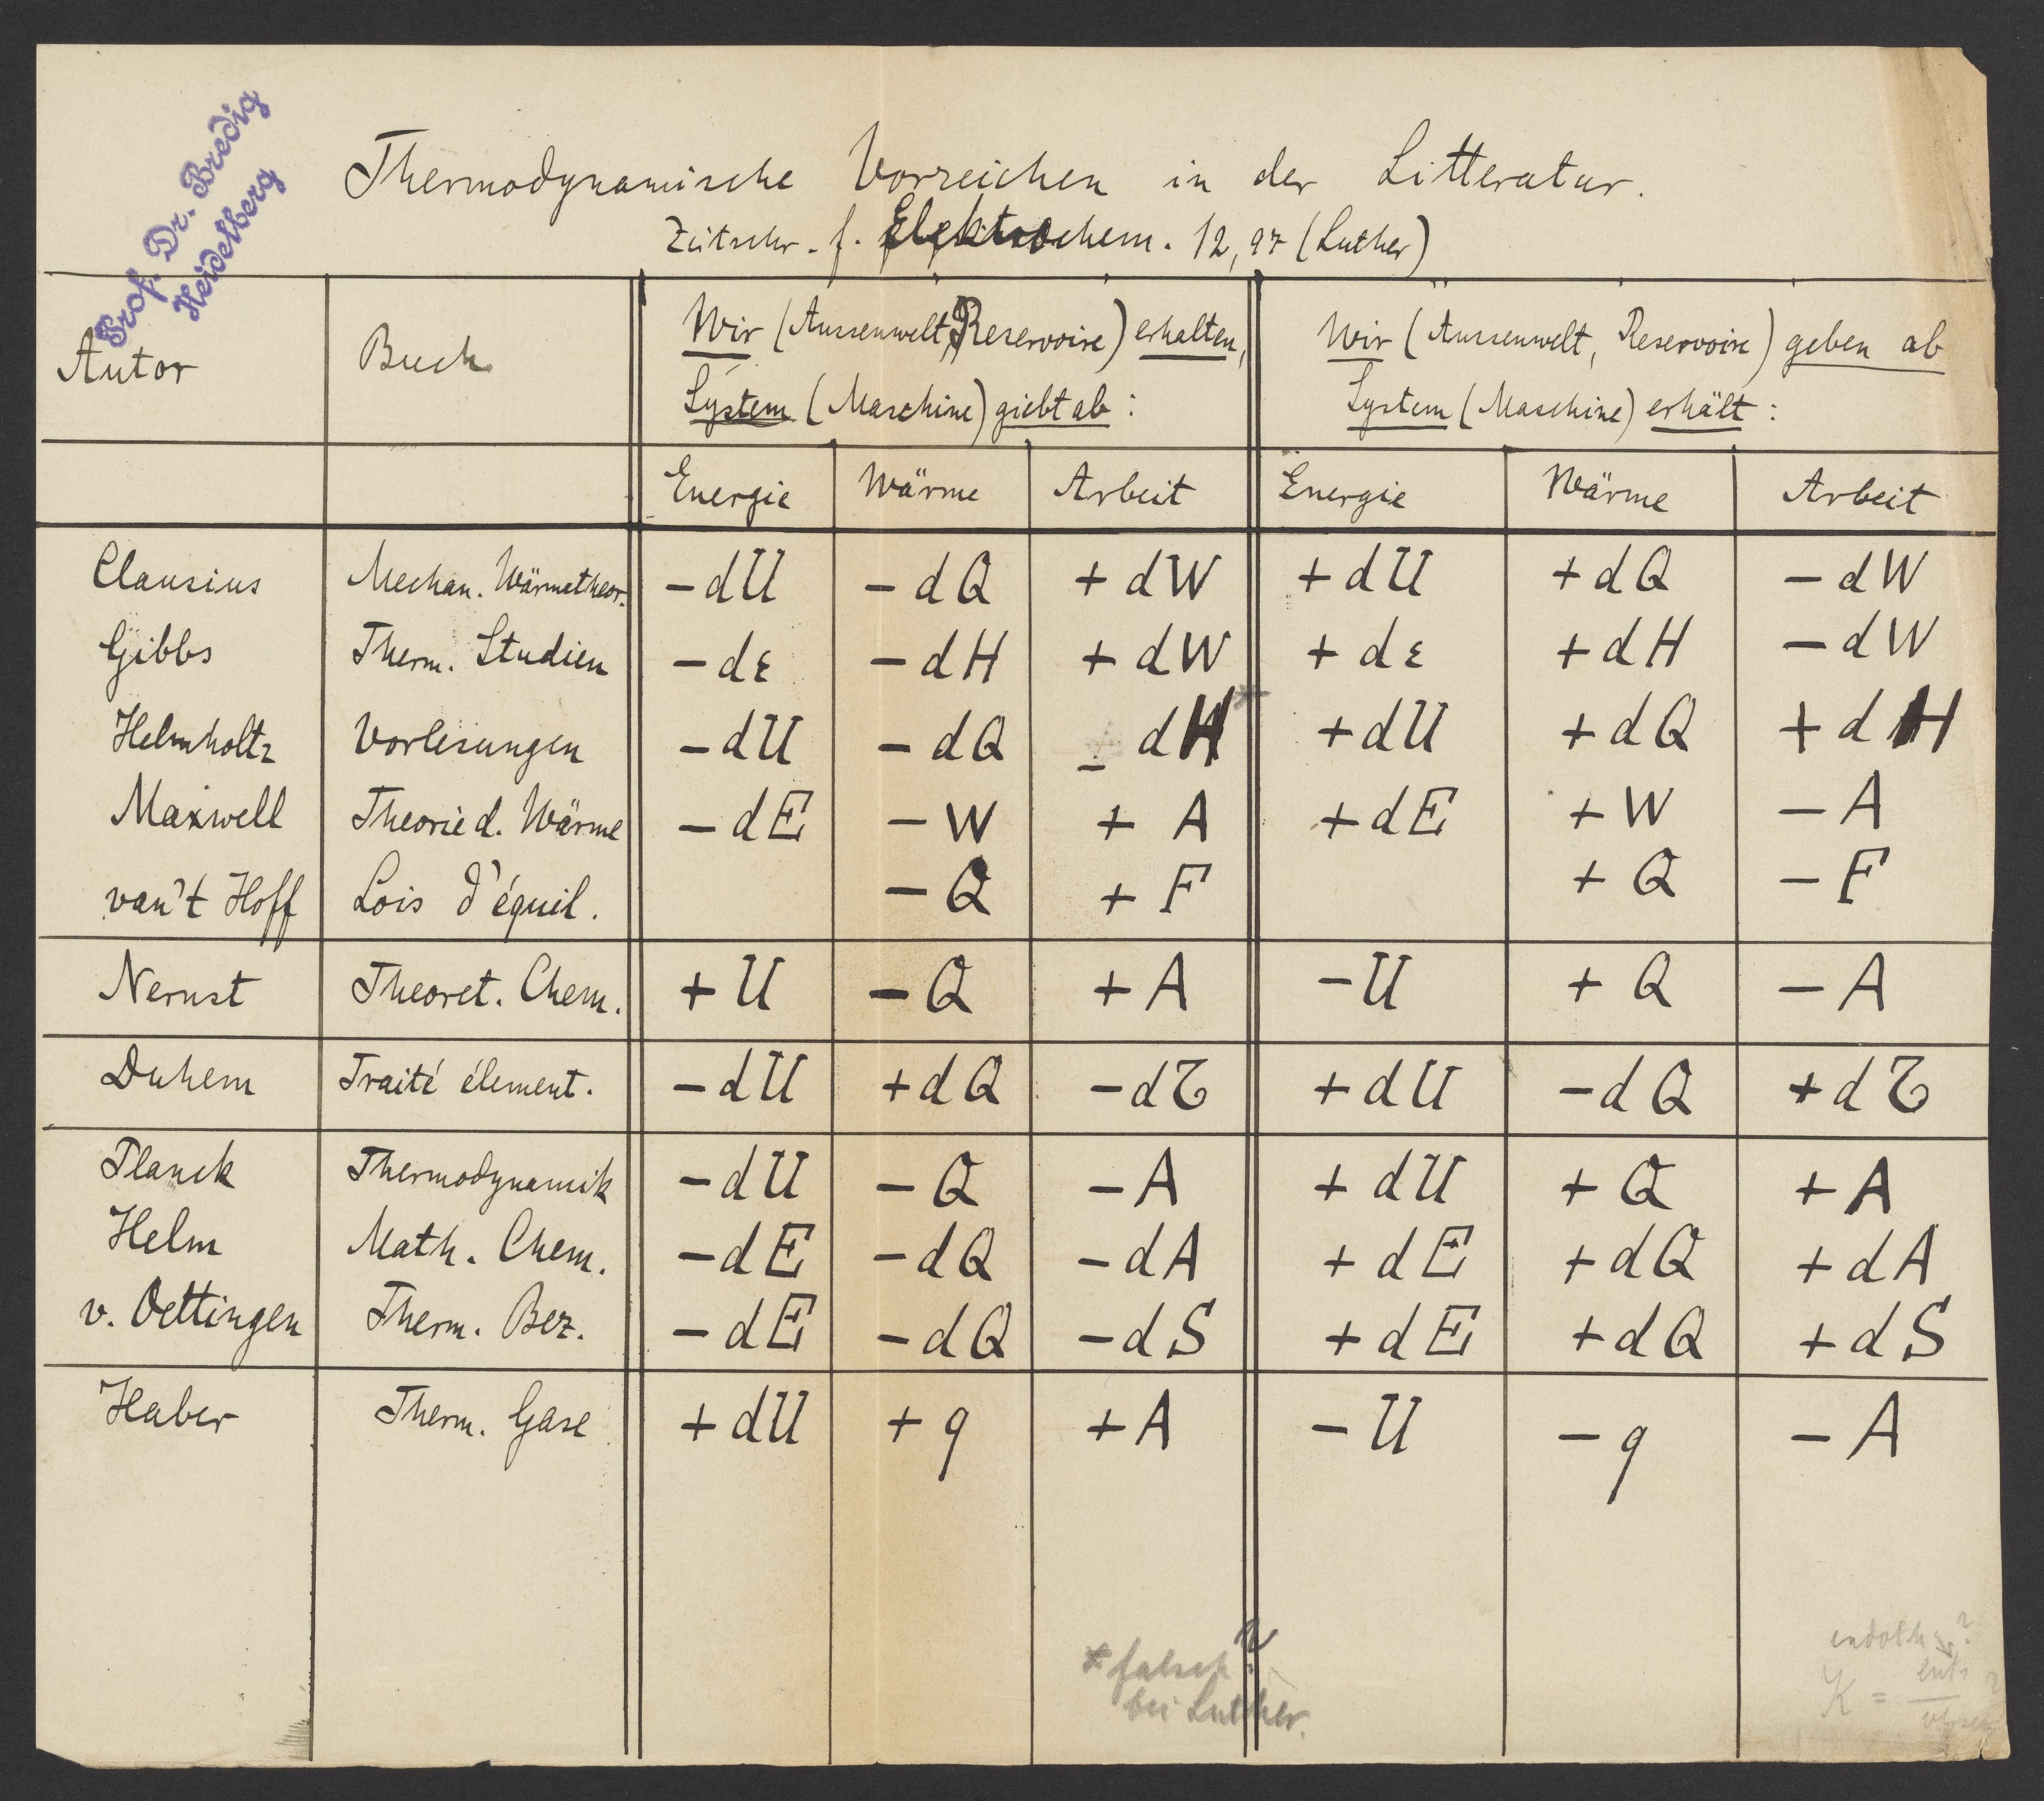 Prof. Dr. Bredig
Heidelberg
Thermodynamische Vorzeichen in der Litteratur.
Zeitschr. f. Elektrochem. 12, 97 (Luther)
Autor Buch Wir (Aussenwelt, Reservoire) erhalten, Wir (Aussenwelt, Reservoire) geben ab
System (Maschine) giebt ab : System (Maschine) erhält :
Energie Wärme Arbeit Energie Wärme Arbeit
Clausius Mechan. Wärmetheor. − dU − dQ + dW + dU + dQ − dW
Gibbs Therm. Studien − dε − dH + dW + dε + dH − dW
Helmholtz Vorlesungen − dU − dQ − dH* + dU + dQ + dH
Maxwell Theorie d. Wärme − dE − W + A + dE + W − A
van't Hoff Lois d'équil. − Q + F + Q − F
Nernst Theoret. Chem. + U − Q + A − U + Q − A
Duhem Traité élement. − dU + dQ − dτ + dU − dQ + dτ
Planck Thermodynamik − dU − Q − A + dU + Q + A
Helm Math. Chem. − dE − dQ − dA + dE + dQ + dA
v. Oettingen Therm. Bez. − dE − dQ − dS + dE + dQ + dS
Haber Therm. Gase + dU + q + A − U − q − A
* falsch ?
bei Luther.
endoth ?
K =